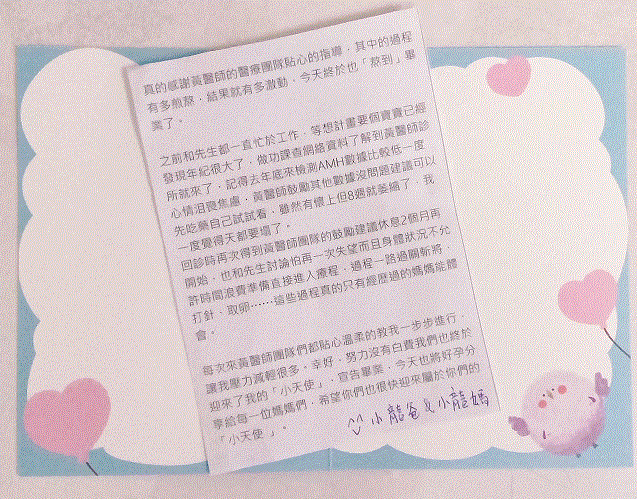 真的感謝黃醫師的醫療團隊貼心的指導，其中的過程
有多煎熬，結果就有多激動，今天終於也「熬到」畢
業了。
之前和先生都一直忙於工作，等想計畫要個寶寶已經
發現年紀很大了，做功課查網絡資料了解到黃醫師診
所就來了，記得去年底來檢測AMH數據比較低一度
心情沮喪焦慮，黃醫師鼓勵其他數據沒問題建議可以
先吃藥自己試試看，雖然有懷上但8週就萎縮了，我
一度覺得天都要塌了。
回診時再次得到黃醫師團隊的鼓勵建議休息2個月再
開始，也和先生討論怕再一次失望而且身體狀況不允
許時間浪費準備直接進入療程，過程一路過關斬將，
打針、取卵......這些過程真的只有經歷過的媽媽能體
會。
每次來黃醫師團隊們都貼心溫柔的教我一步步進行，
讓我壓力減輕很多。幸好，努力沒有白費我們也終於
迎來了我的「小天使」，宣告畢業，今天也將好孕分
享給每一位媽媽們，希望你們也很快迎來屬於你們的
「小天使」。
小龍爸&小龍媽